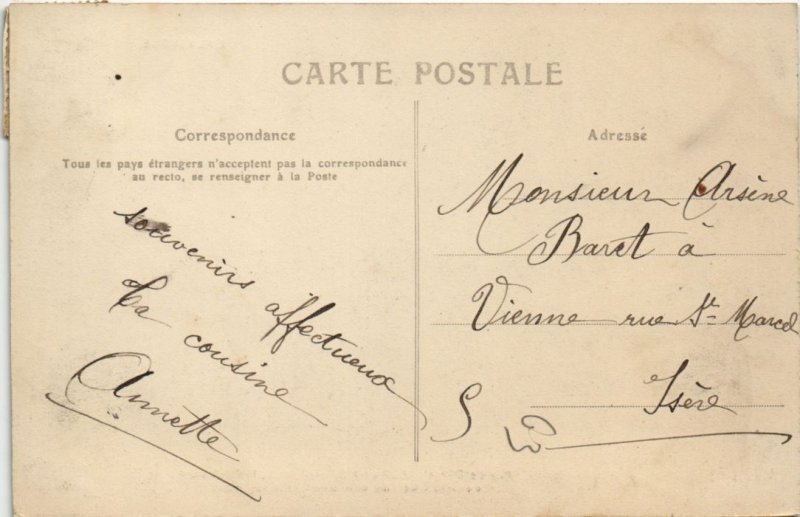 CARTE POSTALE
Correspondance
Tous les pays étrangers n'acceptent pas la correspondance
au recto, se renseigner à la Poste
souvenirs affectueux
Ta cousine
Annette
Adresse
Monsieur Arsène
Baret à
Vienne rue St Marcel
Isère